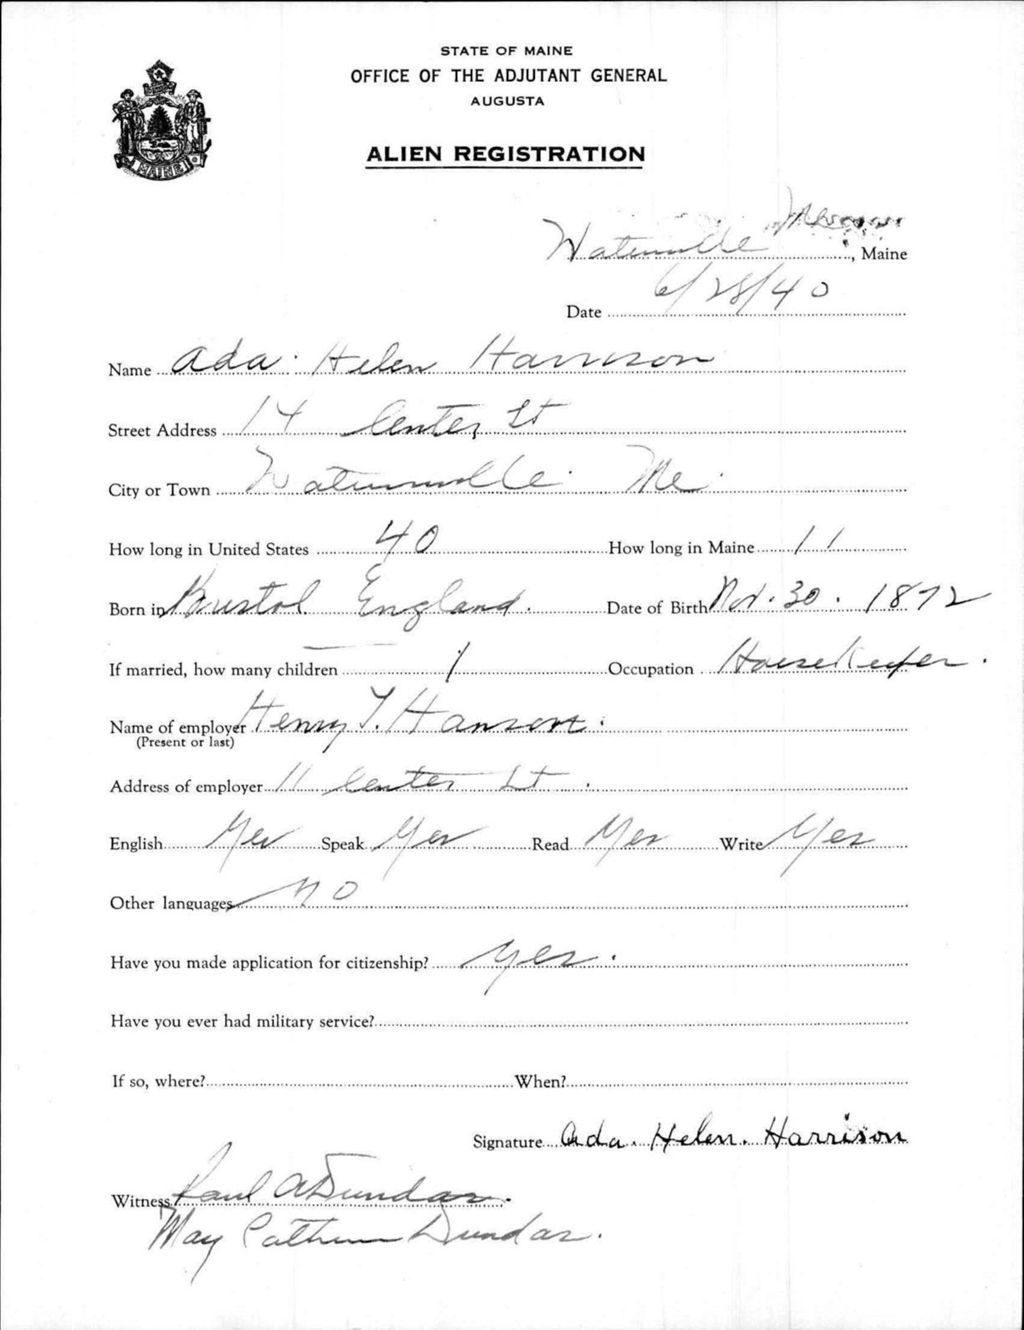 STATE OF MAINE
OFFICE OF THE ADJUTANT GENERAL
AUGUSTA
ALIEN REGISTRATION
MAINE
Waterville, Maine
Date 6/28/40
Name Ada Helen Harrison
Street Address 14 Center St
City or Town Waterville Me.
How long in United States 40 How long in Maine 11
Born in Bristol England. Date of Birth Nov. 30. 1872
If married, how many children 1 Occupation Housekeeper.
Name of employer Henry T. Hanson.
(Present or last)
Address of employer 11 Center St.
English Yes Speak Yes Read Yes Write Yes
Other languages no
Have you made application for citizenship? yes.
Have you ever had military service?
If so, where? When?
Signature Ada. Helen. Harrison
Witness Paul A Dundas.
May Dundas.